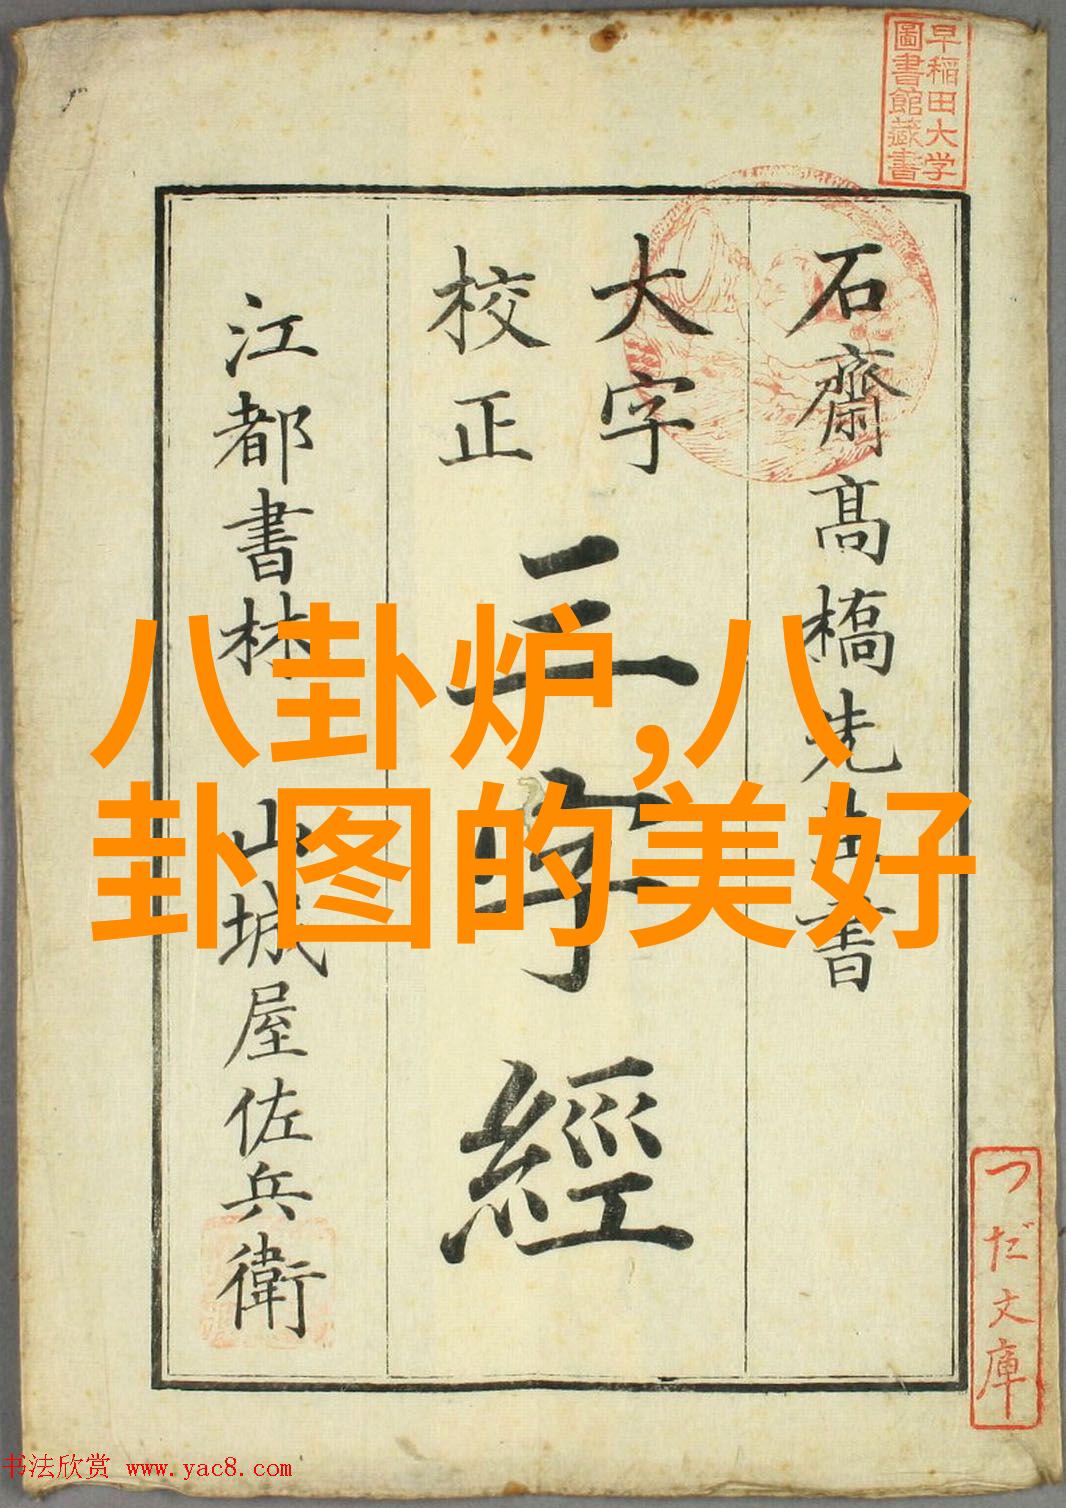 早稲田大学
圖書館藏書
石齋髙橋先生書
大字
校正
三字經
江都書林 山城屋佐兵衛
八卦炉,八
卦图的美好
つだ文庫
书法欣赏 www.yac8.com